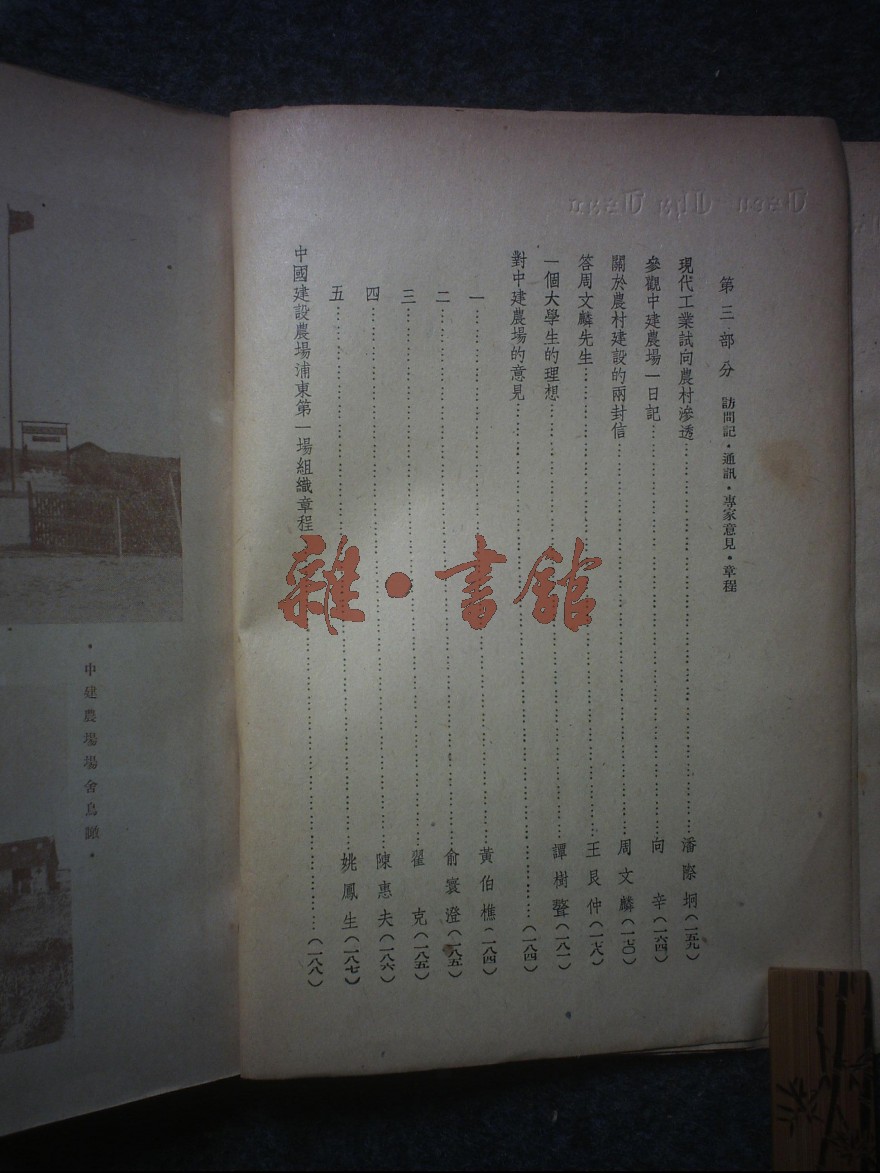 第三部分 訪問記·通訊·專家意見·章程
現代工業試向農村滲透……潘際坰(一五九)
參觀中建農場一日記……向辛(一六四)
關於農村建設的兩封信……周文麟(一七〇)
答周文麟先生……王艮仲(一七八)
一個大學生的理想……譚樹聲(一八一)
對中建農場的意見……(一八四)
一……黃伯樵(一八四)
二……俞寰澄(一八五)
三……翟克(一八五)
四……陳惠夫(一八六)
五……姚鳳生(一八七)
中國建設農場浦東第一場組織章程……(一八八)
·中建農場場舍鳥瞰·
雜·書館